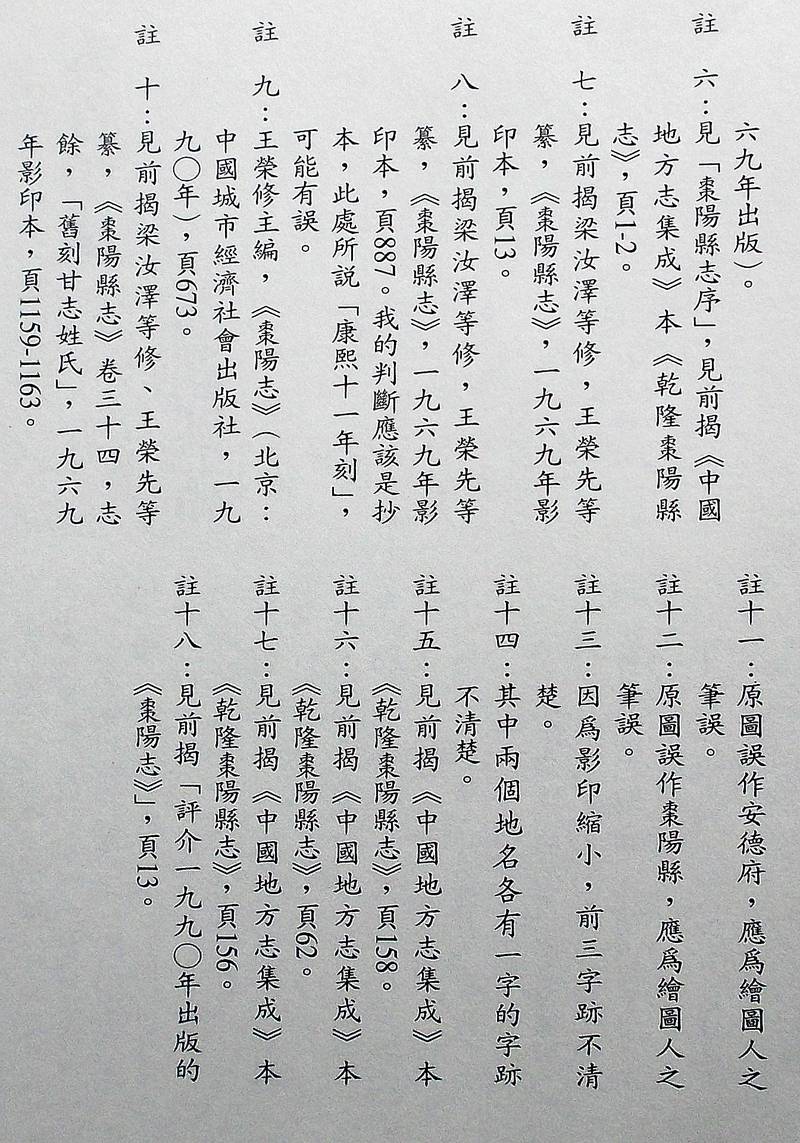 六九年出版）。
註　六：見「棗陽縣志序」，見前揭《中國
地方志集成》本《乾隆棗陽縣
志》，頁1-2。
註　七：見前揭梁汝澤等修，王榮先等
纂，《棗陽縣志》，一九六九年影
印本，頁13。
註　八：見前揭梁汝澤等修，王榮先等
纂，《棗陽縣志》，一九六九年影
印本，頁887。我的判斷應該是抄
本，此處所説「康熙十一年刻」，
可能有誤。
註　九：王榮修主編，《棗陽志》（北京：
中國城市經濟社會出版社，一九
九〇年），頁673。
註　十：見前揭梁汝澤等修、王榮先等
纂，《棗陽縣志》卷三十四，志
餘，「舊刻甘志姓氏」，一九六九
年影印本，頁1159-1163。
註十一：原圖誤作安德府，應爲繪圖人之
筆誤。
註十二：原圖誤作棗陽縣，應爲繪圖人之
筆誤。
註十三：因爲影印縮小，前三字跡不清
楚。
註十四：其中兩個地名各有一字的字跡
不清楚。
註十五：見前揭《中國地方志集成》本
《乾隆棗陽縣志》，頁158。
註十六：見前揭《中國地方志集成》本
《乾隆棗陽縣志》，頁62。
註十七：見前揭《中國地方志集成》本
《乾隆棗陽縣志》，頁156。
註十八：見前揭「評介一九九〇年出版的
《棗陽志》」，頁13。